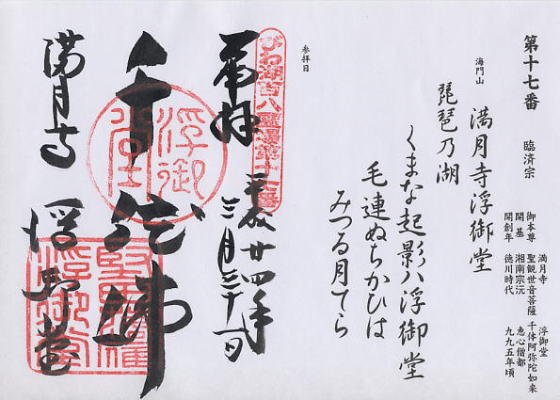 第十七番 臨済宗
御本尊 満月寺 聖観世音菩薩 浮御堂 千体阿弥陀如来
開基 湘南宗沅 恵心僧都
開創年 徳川時代 九九五年頃
海門山 満月寺浮御堂
琵琶乃湖
くまな起影ハ浮御堂
毛連ぬちかひは
みつる月てら
参拝日
びわ湖百八霊場第十七番
奉拝 平成廿四年三月三十一日
千体佛
浮御堂
満月寺 浮御堂